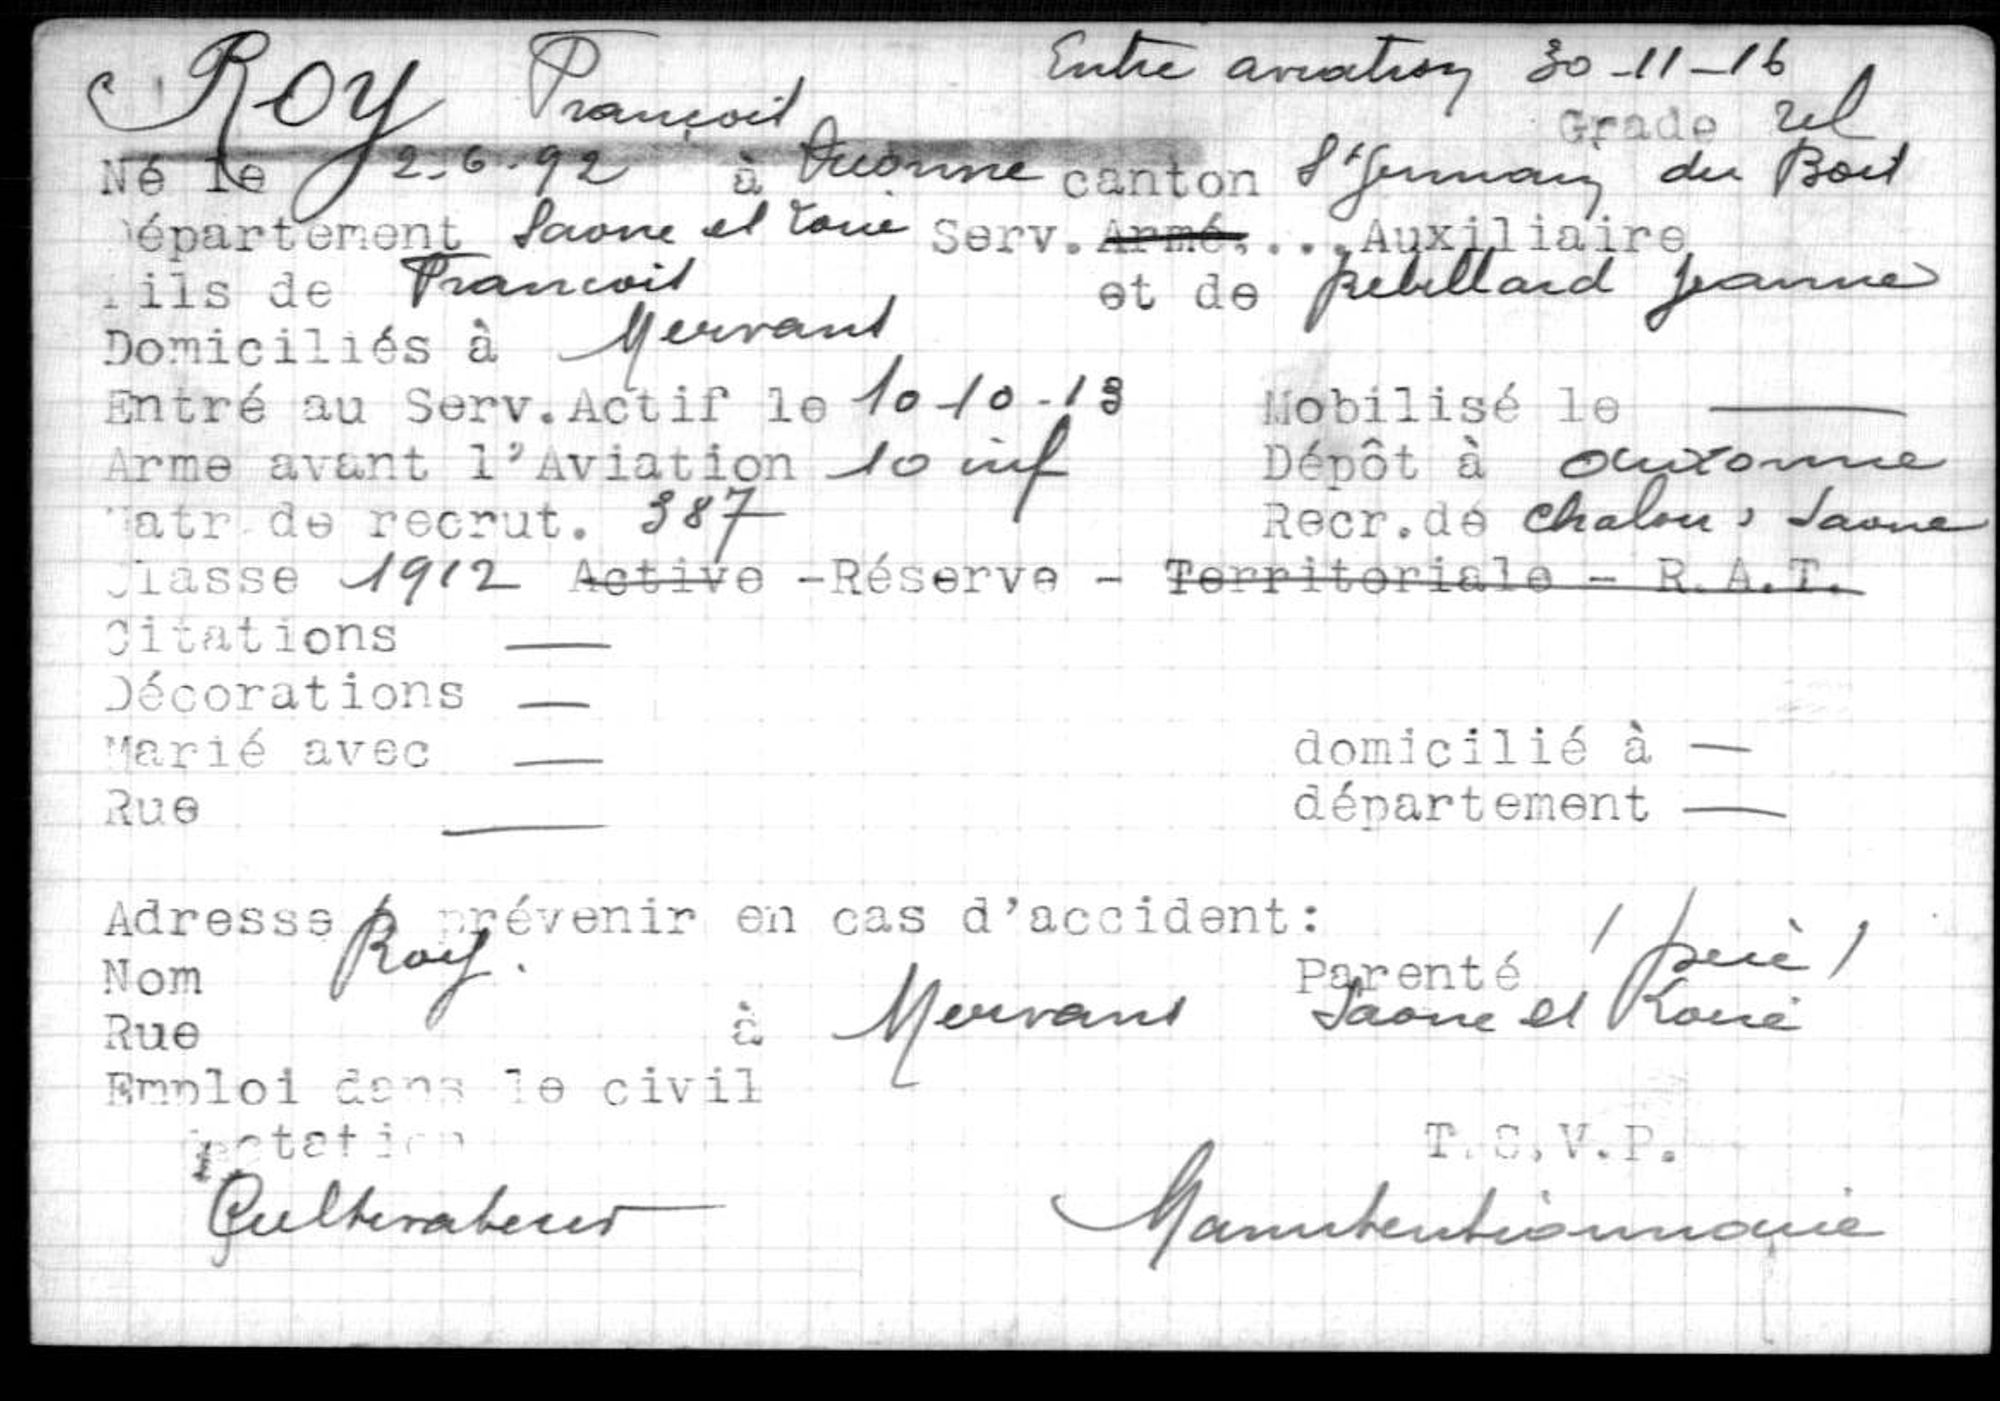 ROY François Entré aviation 30-11-16
Grade 2cl
Né le 2.6.92 à canton St Germain du Bois
Département Saone et Loire Serv. Armé....Auxiliaire
Fils de Francois et de Rebillard Jeanne
Domiciliés à Mervans
Entré au Serv.Actif le 10-10-13 Mobilisé le —
Arme avant l'Aviation 10 inf Dépôt à auxonne
Matr de recrut. 387 Recr.de Chalon s Saone
Classe 1912 Active -Réserve - Territoriale - R.A.T.
Citations —
Décorations —
Marié avec — domicilié à —
Rue — département —
Adresse à prévenir en cas d'accident:
Nom Roy. Parenté / père /
Rue à Mervans Saone et Loire
Emploi dans le civil
T.S.V.P.
Cultivateur Manutentionnaire